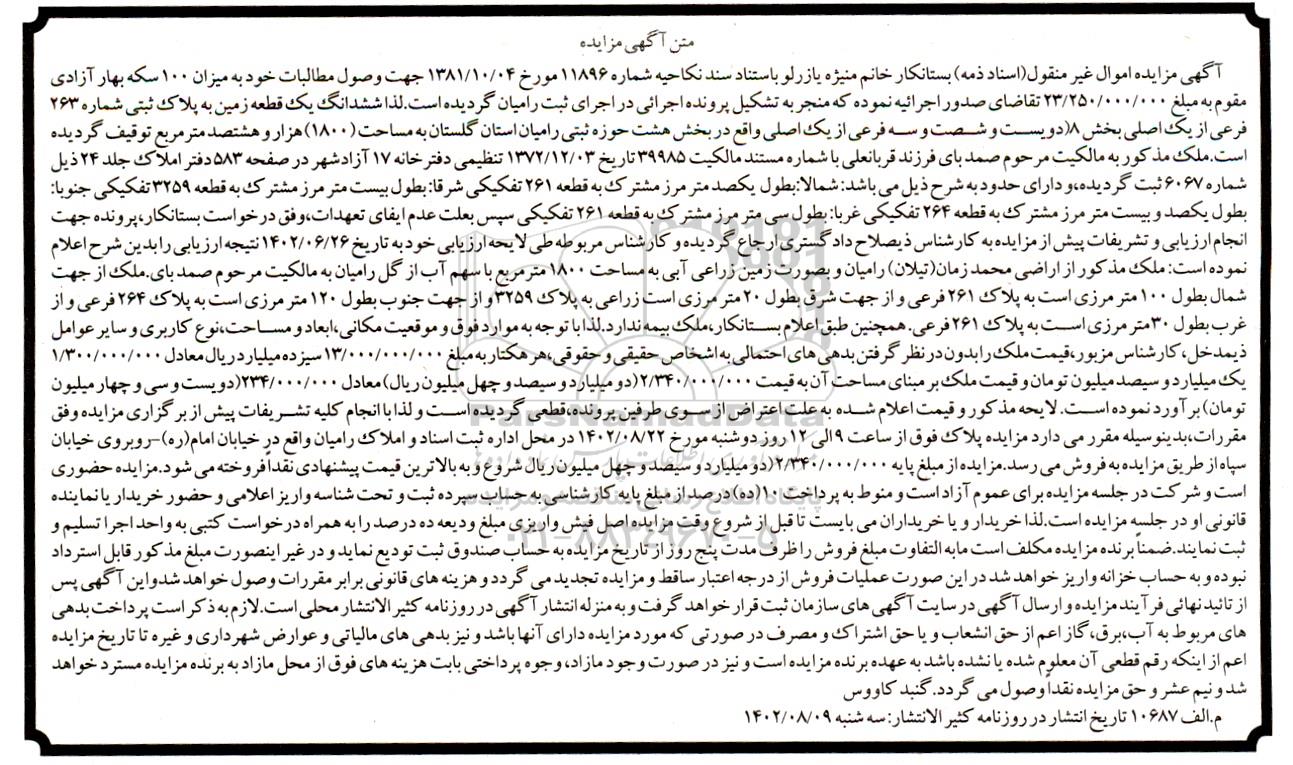 متن آگهی مزایده
آگهی مزایده اموال غیر منقول(اسناد ذمه) بستانکار خانم منیژه یازرلو باستناد سند نکاحیه شماره ۱۱۸۹۶ مورخ ۱۳۸۱/۱۰/۰۴ جهت وصول مطالبات خود به میزان ۱۰۰ سکه بهار آزادی
مقوم به مبلغ ۲۳/۲۵۰/۰۰۰/۰۰۰ تقاضای صدور اجرائیه نموده که منجر به تشکیل پرونده اجرائی در اجرای ثبت رامیان گردیده است.لذا ششدانگ یک قطعه زمین به پلاک ثبتی شماره ۲۶۳
فرعی از یک اصلی بخش ۸(دویست و شصت و سه فرعی از یک اصلی واقع در بخش هشت حوزه ثبتی رامیان استان گلستان به مساحت (۱۸۰۰) هزار و هشتصد متر مربع توقیف گردیده
است.ملک مذکور به مالکیت مرحوم صمد بای فرزند قربانعلی با شماره مستند مالکیت ۳۹۹۸۵ تاریخ ۱۳۷۲/۱۲/۰۳ تنظیمی دفترخانه ۱۷ آزادشهر در صفحه ۵۸۳ دفتر املاک جلد ۲۴ ذیل
شماره ۶۰۶۷ ثبت گردیده،و دارای حدود به شرح ذیل می باشد: شمالا:بطول یکصد متر مرز مشترک به قطعه ۲۶۱ تفکیکی شرقا:بطول بیست متر مرز مشترک به قطعه ۳۲۵۹ تفکیکی جنوبا:
بطول یکصد و بیست متر مرز مشترک به قطعه ۲۶۴ تفکیکی غربا: بطول سی متر مرز مشترک به قطعه ۲۶۱ تفکیکی سپس بعلت عدم ایفای تعهدات،وفق درخواست بستانکار،پرونده جهت
انجام ارزیابی و تشریفات پیش از مزایده به کارشناس ذیصلاح دادگستری ارجاع گردیده و کارشناس مربوطه طی لایحه ارزیابی خود به تاریخ ۱۴۰۲/۰۶/۲۶ نتیجه ارزیابی را بدین شرح اعلام
نموده است: ملک مذکور از اراضی محمد زمان(تیلان) رامیان و بصورت زمین زراعی آبی به مساحت ۱۸۰۰ مترمربع با سهم آب از گل رامیان به مالکیت مرحوم صمد بای.ملک از جهت
شمال بطول ۱۰۰ متر مرزی است به پلاک ۲۶۱ فرعی و از جهت شرق بطول ۲۰ متر مرزی است زراعی به پلاک ۳۲۵۹ و از جهت جنوب بطول ۱۲۰ متر مرزی است به پلاک ۲۶۴ فرعی و از
غرب بطول ۳۰ متر مرزی است به پلاک ۲۶۱ فرعی.همچنین طبق اعلام بستانکار،ملک بیمه ندارد.لذا با توجه به موارد فوق و موقعیت مکانی،ابعاد و مساحت،نوع کاربری و سایر عوامل
ذیمدخل،کارشناس مزبور،قیمت ملک را بدون در نظر گرفتن بدهی های احتمالی به اشخاص حقیقی و حقوقی،هر هکتار به مبلغ ۱۳/۰۰۰/۰۰۰/۰۰۰ سیزده میلیارد ریال معادل ۱/۳۰۰/۰۰۰/۰۰۰
یک میلیارد و سیصد میلیون تومان و قیمت ملک بر مبنای مساحت آن به قیمت ۲/۳۴۰/۰۰۰/۰۰۰(دو میلیارد و سیصد و چهل میلیون ریال) معادل ۲۳۴/۰۰۰/۰۰۰(دویست و سی و چهار میلیون
تومان) برآورد نموده است. لایحه مذکور و قیمت اعلام شده به علت اعتراض از سوی طرفین پرونده،قطعی گردیده است و لذا با انجام کلیه تشریفات پیش از برگزاری مزایده وفق
مقررات،بدینوسیله مقرر می دارد مزایده پلاک فوق از ساعت ۹ الی ۱۲ روز دوشنبه مورخ ۱۴۰۲/۰۸/۲۲ در محل اداره ثبت اسناد و املاک رامیان واقع در خیابان امام(ره)-روبروی خیابان
سپاه از طریق مزایده به فروش می رسد.مزایده از مبلغ پایه ۲/۳۴۰/۰۰۰/۰۰۰(دو میلیارد و سیصد و چهل میلیون ریال شروع و به بالاترین قیمت پیشنهادی نقداً فروخته می شود.مزایده حضوری
است و شرکت در جلسه مزایده برای عموم آزاد است و منوط به پرداخت ۱۰(ده) درصد از مبلغ پایه کارشناسی به حساب سپرده ثبت و تحت شناسه واریز اعلامی و حضور خریدار یا نماینده
قانونی او در جلسه مزایده است.لذا خریدار و یا خریداران می بایست تا قبل از شروع وقت مزایده اصل فیش واریزی مبلغ ودیعه ده درصد را به همراه درخواست کتبی به واحد اجرا تسلیم و
ثبت نمایند.ضمناً برنده مزایده مکلف است مابه التفاوت مبلغ فروش را ظرف مدت پنج روز از تاریخ مزایده به حساب صندوق ثبت تودیع نماید و در غیر اینصورت مبلغ مذکور قابل استرداد
نبوده و به حساب خزانه واریز خواهد شد در این صورت عملیات فروش از درجه اعتبار ساقط و مزایده تجدید می گردد و هزینه های قانونی برابر مقررات وصول خواهد شدواین آگهی پس
از تائید نهائی فرآیند مزایده و ارسال آگهی در سایت آگهی های سازمان ثبت قرار خواهد گرفت و به منزله انتشار آگهی در روزنامه کثیر الانتشار محلی است.لازم به ذکر است پرداخت بدهی
های مربوط به آب،برق،گاز اعم از حق انشعاب و یا حق اشتراک و مصرف در صورتی که مورد مزایده دارای آنها باشد و نیز بدهی های مالیاتی و عوارض شهرداری و غیره تا تاریخ مزایده
اعم از اینکه رقم قطعی آن معلوم شده یا نشده باشد به عهده برنده مزایده است و نیز در صورت وجود مازاد، وجوه پرداختی بابت هزینه های فوق از محل مازاد به برنده مزایده مسترد خواهد
شد و نیم عشر و حق مزایده نقداً وصول می گردد. گنبد کاووس
م.الف ۱۰۶۸۷ تاریخ انتشار در روزنامه کثیر الانتشار: سه شنبه ۱۴۰۲/۰۸/۰۹
ParsNamadData
۰۲۱-۸۸۳۴۹۶۷۰-۵